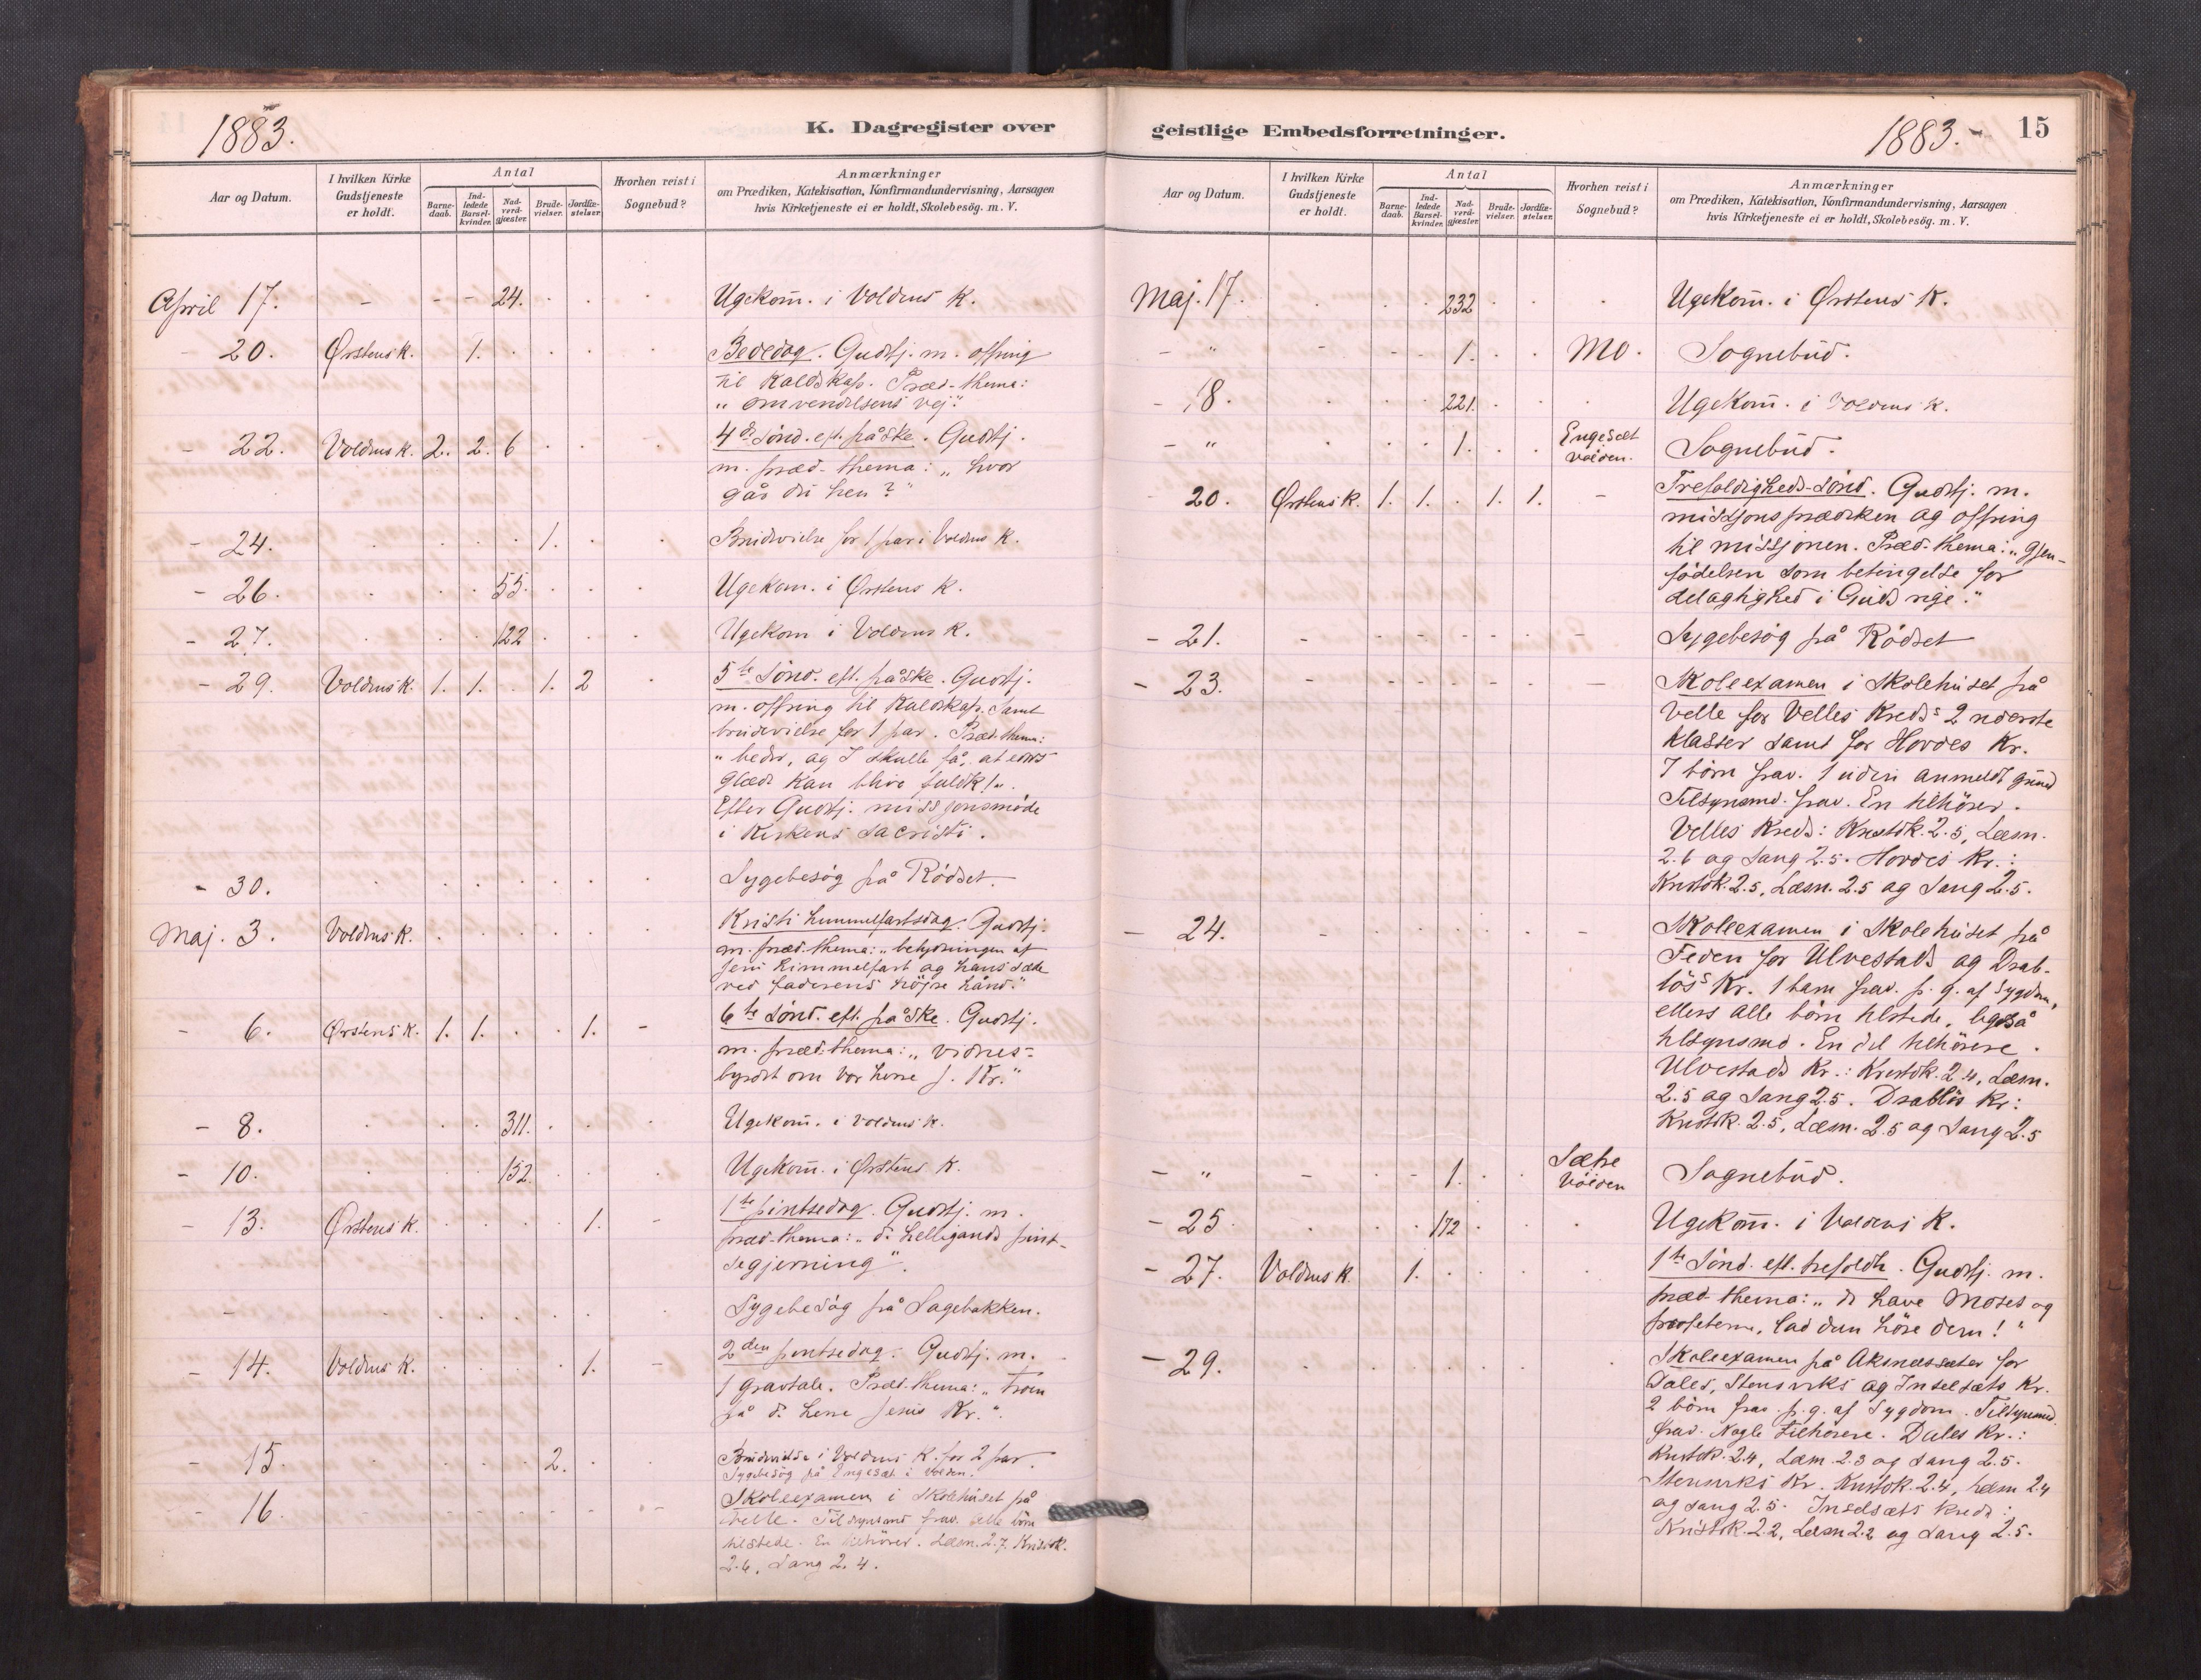 1883.
K. Dagregister over
Aar og Datum.
I hvilken Kirke Gudstjeneste er holdt.
Antal
Barne-daab.
Ind-ledede Barsel-kvinder.
Nad-verd-gjæster.
Brude-vielser.
Jordfæ-stelser.
Hvorhen reist i Sognebud?
Anmærkninger
om Prædiken, Katekisation, Konfirmandundervisning, Aarsagen
hvis Kirketjeneste ei er holdt, Skolebesøg. m. V.
April 17. - - - 24. . . . Ugekom̄. i Voldens K.
- 20. Ørstens K. 1. . . . . Bededag. Gudstj. m. offring
til Kaldskap. Præd-thema:
„omvendelsens vej".
- 22. Voldens K. 2. 2. 6 . . . 4de sønd. eft. påske. Gudstj.
m. præd-thema: „hvor
går du hen?"
- 24. . . . . 1. . . Brudvielse for 1 par i Voldens K.
- 26. . . . 55. . . . Ugekom. i Ørstens K.
- 27. . . . 122 . . . Ugekom i Voldens K.
- 29. Voldens K. 1. 1. . 1. 2 . 5te Sønd. eft. påske. Gudstj.
m. offring til Kaldskap. samt
brudevielse for 1 par. Præd-thema:
„beder, og I skulle få, at eders
glæde kan blive fuldk!".
Efter Gudstj. missjonsmøde
i Kirkens sacristi.
- 30. . . . . . . . Sygebesøg på Rødset.
Maj. 3. Voldens K. . . . . . . Kristi himmelfartsdag. Gudstj.
m. præd-thema: „betydningen af
Jesu himmelfart og hans sæde
ved faderens højre hånd."
- 6. Ørstens K. 1. 1. . . 1. - 6te sønd. eft. påske. Gudstj.
m. præd-thema: „vidnes-
byrdet om vor herre J. Kr."
- 8. . . . 311. . . . Ugekom̄. i Voldens K.
- 10. . . . 152. . . . Ugekom̄. i Ørstens K.
- 13. Ørstens K. . . . . 1. - 1ste pintsedag. Gudstj. m.
præd-thema: „d. helligånds pint-
segjerning".
- . . . . . . . Sygebesøg på Sagebakken.
- 14. Voldens K. . . . . 1. - 2den pintsedag. Gudstj. m.
1 gravtale. Præd-thema: „troen
på d. herre Jesus Kr."
- 15. . . . . 2. . . Brudevielse i Voldens K. for 2 par.
Sygebesøg på Engesæt i Volden.
- 16. - - - - - - - Skoleexamen i skolehuset på
Velle. Tilsynsmd frav. alle børn
tilstede. En tilhører. Læsn. 2.7. Kristdk.
2.6, Sang 2.4.
geistlige Embedsforretninger.
1883.
15
Aar og Datum.
I hvilken Kirke Gudstjeneste er holdt.
Antal
Barne-daab.
Ind-ledede Barsel-kvinder.
Nad-verd-gjæster.
Brude-vielser.
Jordfæ-stelser.
Hvorhen reist i Sognebud?
Anmærkninger
om Prædiken, Katekisation, Konfirmandundervisning, Aarsagen
hvis Kirketjeneste ei er holdt, Skolebesøg. m. V.
Maj. 17. . . . 232 . . . Ugekom̄. i Ørstens K.
- " - - - 1. . . Mo. Sognebud.
- 18. . . . 221. . . . Ugekom̄. i Voldens K.
- " . . . 1. . . Engesæt Volden. Sognebud.
20. Ørstens K. 1. 1. . 1. 1. - Trefoldigheds-sønd. Gudstj. m.
missjonsprædiken og offring
til missjonen. Præd-thema: „Gjen-
fødelsen som betingelse for
delagtighed i Guds rige."
- 21. - - - - - - - Sygebesøg på Rødset
- 23. - - - - - - - Skoleexamen i skolehuset på
Velle for Velles Kreds' 2 nederste
klasser samt for Hovdes Kr.
7 børn frav. 1 uden anmeldt grund
Tilsynsmd. frav. En tilhører.
Velles Kreds: Kristdk. 2.5, Læsn.
2.6 og Sang 2.5. Hovdes Kr.:
Kristdk. 2.5, Læsn. 2.5 og Sang 2.5.
- 24. - . . . . - - Skoleexamen i Skolehuset på
for Ulvestads og Drab-
løs' Kr. 1 barn frav. p. g. af Sygdom,
ellers alle børn tilstede, også
tilsynsmd. En del tilhørere.
Ulvestads Kr.: Kristdk. 2.4, Læsn.
2.5 og Sang 2.5. Drabløs Kr.:
Kristdk. 2.5, Læsn. 2.5 og Sang 2.5
- " - . . 1. . . Sætre Volden Sognebud.
- 25 . . . 172 . . . Ugekom̄. i Voldens K.
- 27. Voldens K. 1. . . . . 1ste Sønd. eft. trefoldh. Gudstj. m.
præd-thema: „de have Moses og
profeterne, lad dem høre dem!"
- 29. . . . . . . . Skoleexamen på Aksnessæter for
Dales, Stensviks og Inselsæts Kr.
2 børn frav. p. g. af Sygdom. Tilsynsmd.
frav. Nogle tilhørere. Dales Kr.:
Kristdk. 2.4, Læsn. 2.3 og Sang 2.5.
Stensviks Kr. Kristdk. 2.4, Læsn 2.4
og sang 2.5. Inselsæts kreds:
Kristdk. 2.2, Læsn 2.2 og sang 2.5.